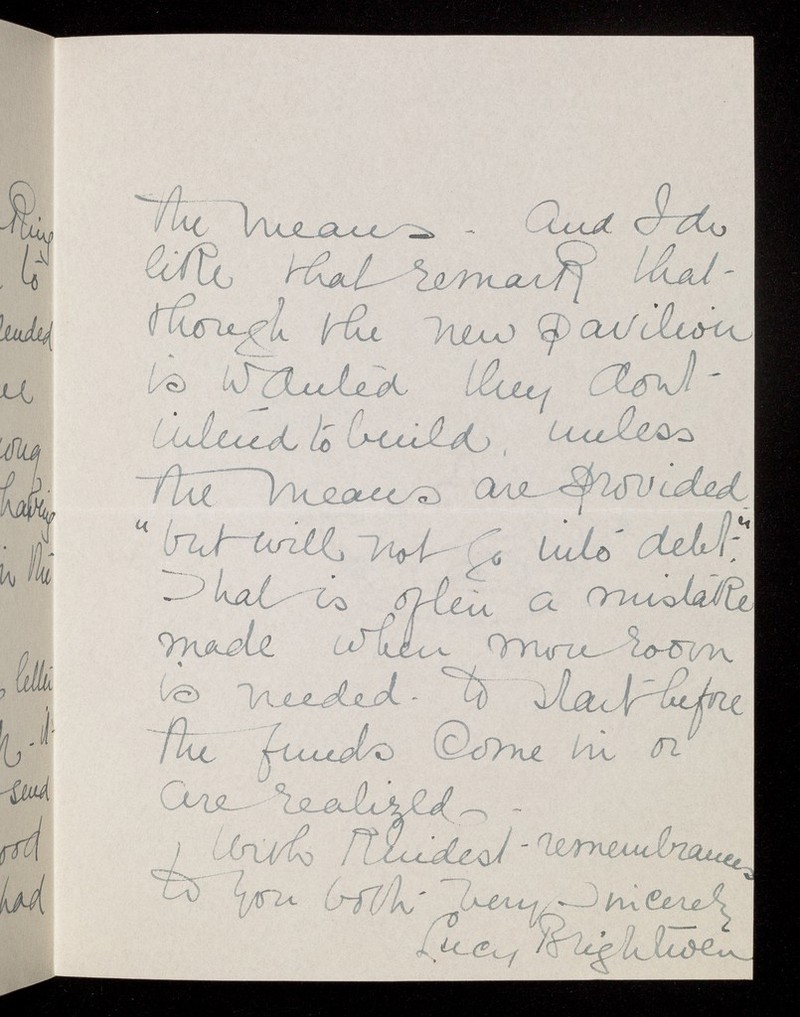 thing
to
ended
ong
having
in the
letter
it
send
ood
had
the means - And I do
like that remark that -
though the new pavilion
is wanted they dont -
intend to build, unless
the means are provided
"but will not go into debt."
That is often a mistake
made when more room
is needed. to start before
the funds come in or
are realized -
With kindest - remembrances
to you both - Very Sincerely
Lucy Brightwen